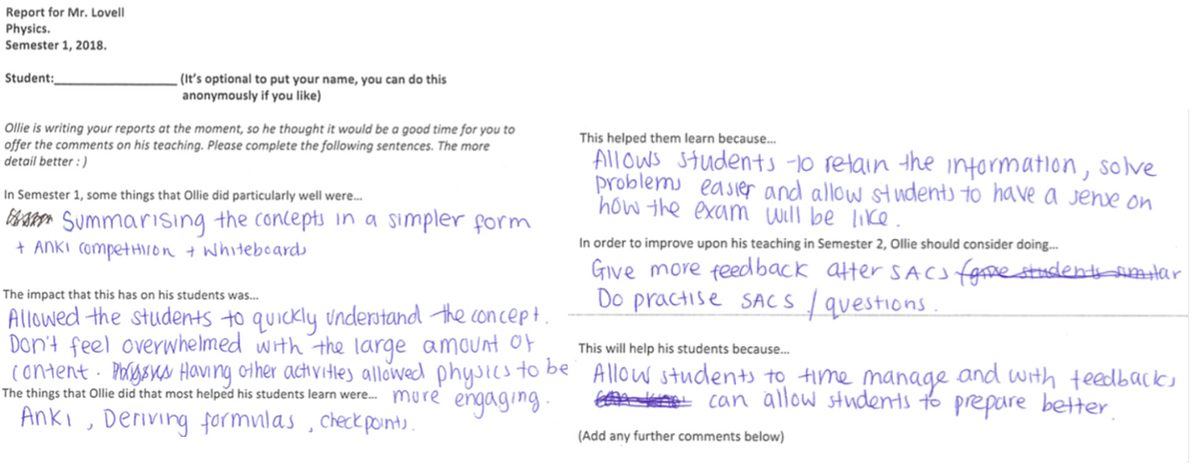 Report for Mr. Lovell
Physics.
Semester 1, 2018.
Student:____________________ (It's optional to put your name, you can do this
anonymously if you like)
Ollie is writing your reports at the moment, so he thought it would be a good time for you to
offer the comments on his teaching. Please complete the following sentences. The more
detail better : )
In Semester 1, some things that Ollie did particularly well were...
Summarising the concepts in a simpler form
+ Anki competition + whiteboards
The impact that this has on his students was...
Allowed the students to quickly understand the concept.
Don't feel overwhelmed with the large amount of
content. Physics Having other activities allowed physics to be
more engaging.
The things that Ollie did that most helped his students learn were...
Anki, Deriving formulas, checkpoints.
This helped them learn because...
Allows students to retain the information, solve
problems easier and allow students to have a sense on
how the exam will be like.
In order to improve upon his teaching in Semester 2, Ollie should consider doing...
Give more feedback after SACS (give students similar
Do practise SACS / questions.
This will help his students because...
Allow students to time manage and with feedbacks
can allow students to prepare better.
(Add any further comments below)